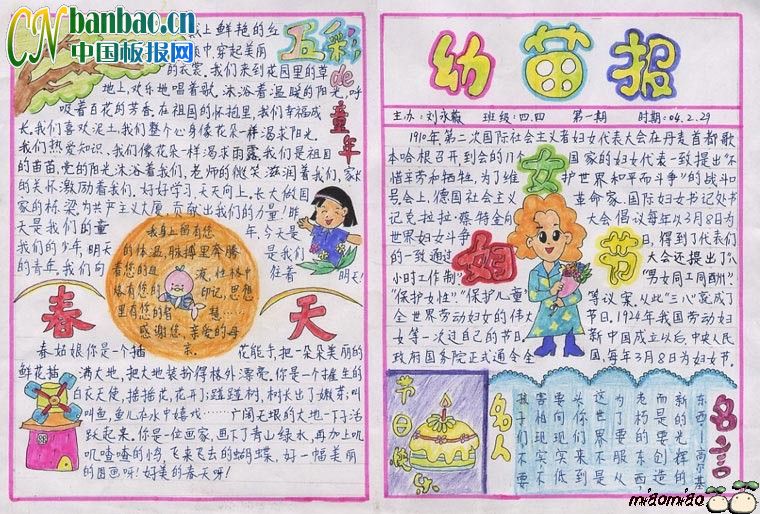 CN banbao.cn
中国板报网
五彩de童年
上鲜艳的红
中,穿起美丽
的衣裳。我们来到花园里的草
地上,欢乐地唱着歌。沐浴着温暖的阳光,呼
吸着百花的芳香。在祖国的怀抱里,我们幸福成
长。我们喜欢泥土,我们整个心身像花朵一样渴求阳光。
我们热爱知识,我们像花朵一样渴求雨露。我们是祖国
的苗苗,党的阳光沐浴着我们,老师的微笑滋润着我们,家长
的关怀激励着我们。好好学习,天天向上。长大做国
家的栋梁,为共产主义大厦,贡献出我们的力量!昨
天是我们的童年,今天是
我们的少年,明天是我们
的青年,我们向往着明天!
我身上留有您
的体温,脉搏里奔腾
着您的血液,性格中
烙有您的印记,思想
里有您的智慧……
感谢您,亲爱的母
亲。
春天
春姑娘你是一个插花能手,把一朵朵美丽的
鲜花插满大地,把大地装扮得林外漂亮。你是一个催生的
白衣天使,摇摇花,花开;碰碰树,树长出了嫩芽;叫
叫鱼,鱼儿在水中嬉戏……广阔无垠的大地一下子活
跃起来。你是一位画家,画下了青山绿水,再加上叽
叽喳喳的小鸟,飞来飞去的蝴蝶,好一幅美丽
的图画呀!好美的春天呀!
幼苗报
主办:刘永薇 班级:四.四 第一期 时期:04.2.29
1910年,第二次国际社会主义者妇女代表大会在丹麦首都歌
本哈根召开,到会的17个国家的妇女代表一致提出“不
惜辛劳和牺牲,为了维护世界和平而斗争”的战斗口
号。会上,德国社会主义革命家、国际妇女书记处书
记克拉拉·蔡特金向大会倡议每年以3月8日为
世界妇女斗争日,得到了代表们
的一致通过。大会还提出了“八
小时工作制”、“男女同工同酬”、
“保护女性”、“保护儿童”等议案。从此“三八”就成了
全世界劳动妇女的伟大节日。1924年我国劳动妇
女第一次过自己的节日,新中国成立以后,中央人民
政府国务院正式通令全国,每年3月8日为妇女节。
妇女节
节日快乐
名人名言
东西——高尔基
新的光辉的
而是要创造
老朽的西
为了要服从
这世界不是
你们来到
头向现实低
害相现实
孩子们不要
miaomiao